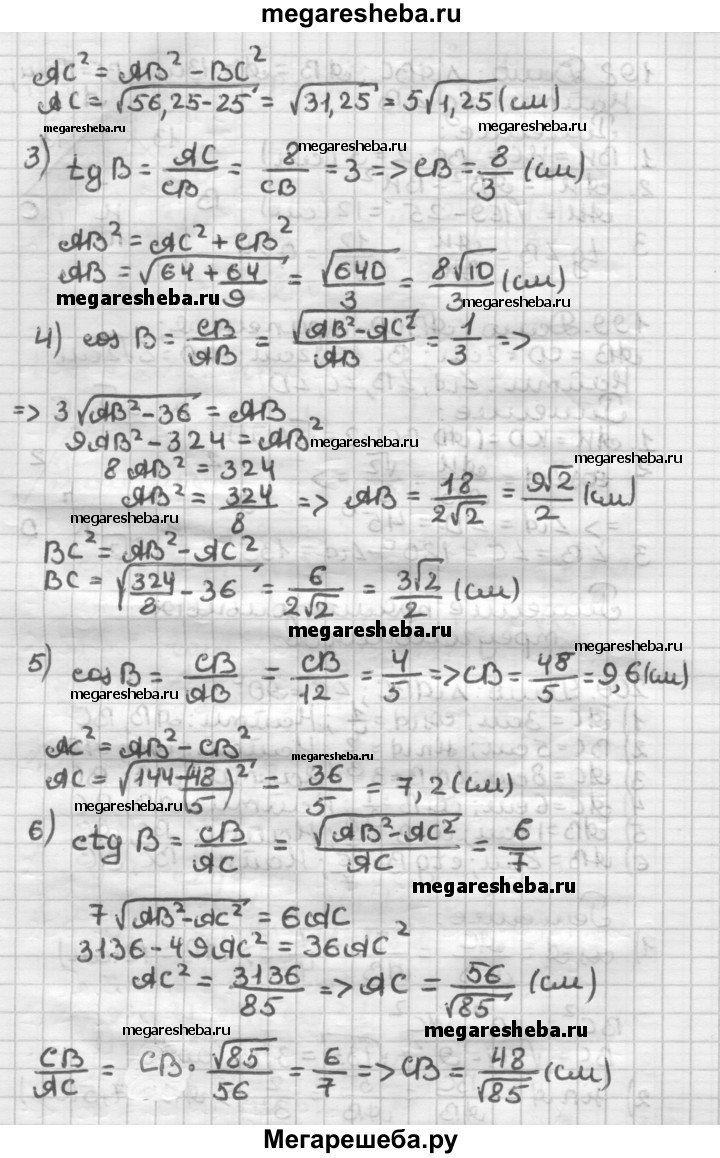 megaresheba.ru
AC² = AB² − BC²
AC = √(56,25−25) = √31,25 = 5√1,25 (см)
megaresheba.ru megaresheba.ru megaresheba.ru
3) tg B = AC/CB = 8/CB = 3 => CB = 8/3 (см)
AB² = AC² + CB²
AB = √(64 + 64/9) = √640/3 = 8√10/3 (см)
megaresheba.ru megaresheba.ru
4) cos B = CB/AB = √(AB²−AC²)/AB = 1/3 =>
=> 3√(AB²−36) = AB
9AB² − 324 = AB²
megaresheba.ru
8AB² = 324
megaresheba.ru
AB² = 324/8 => AB = 18/2√2 = 9√2/2 (см)
megaresheba.ru
BC² = AB² − AC²
BC = √(324/8 − 36) = 6/2√2 = 3√2/2 (см)
megaresheba.ru
megaresheba.ru
5) cos B = CB/AB = CB/12 = 4/5 => CB = 48/5 = 9,6 (см)
megaresheba.ru
AC² = AB² − CB²
megaresheba.ru
AC = √(144−(48/5)²) = 36/5 = 7,2 (см)
megaresheba.ru
6) ctg B = CB/AC = √(AB²−AC²)/AC = 6/7
megaresheba.ru
7√(AB²−AC²) = 6AC
3136 − 49AC² = 36AC²
AC² = 3136/85 => AC = 56/√85 (см)
megaresheba.ru megaresheba.ru
CB/AC = CB · √85/56 = 6/7 => CB = 48/√85 (см)
Мегарешеба.ру